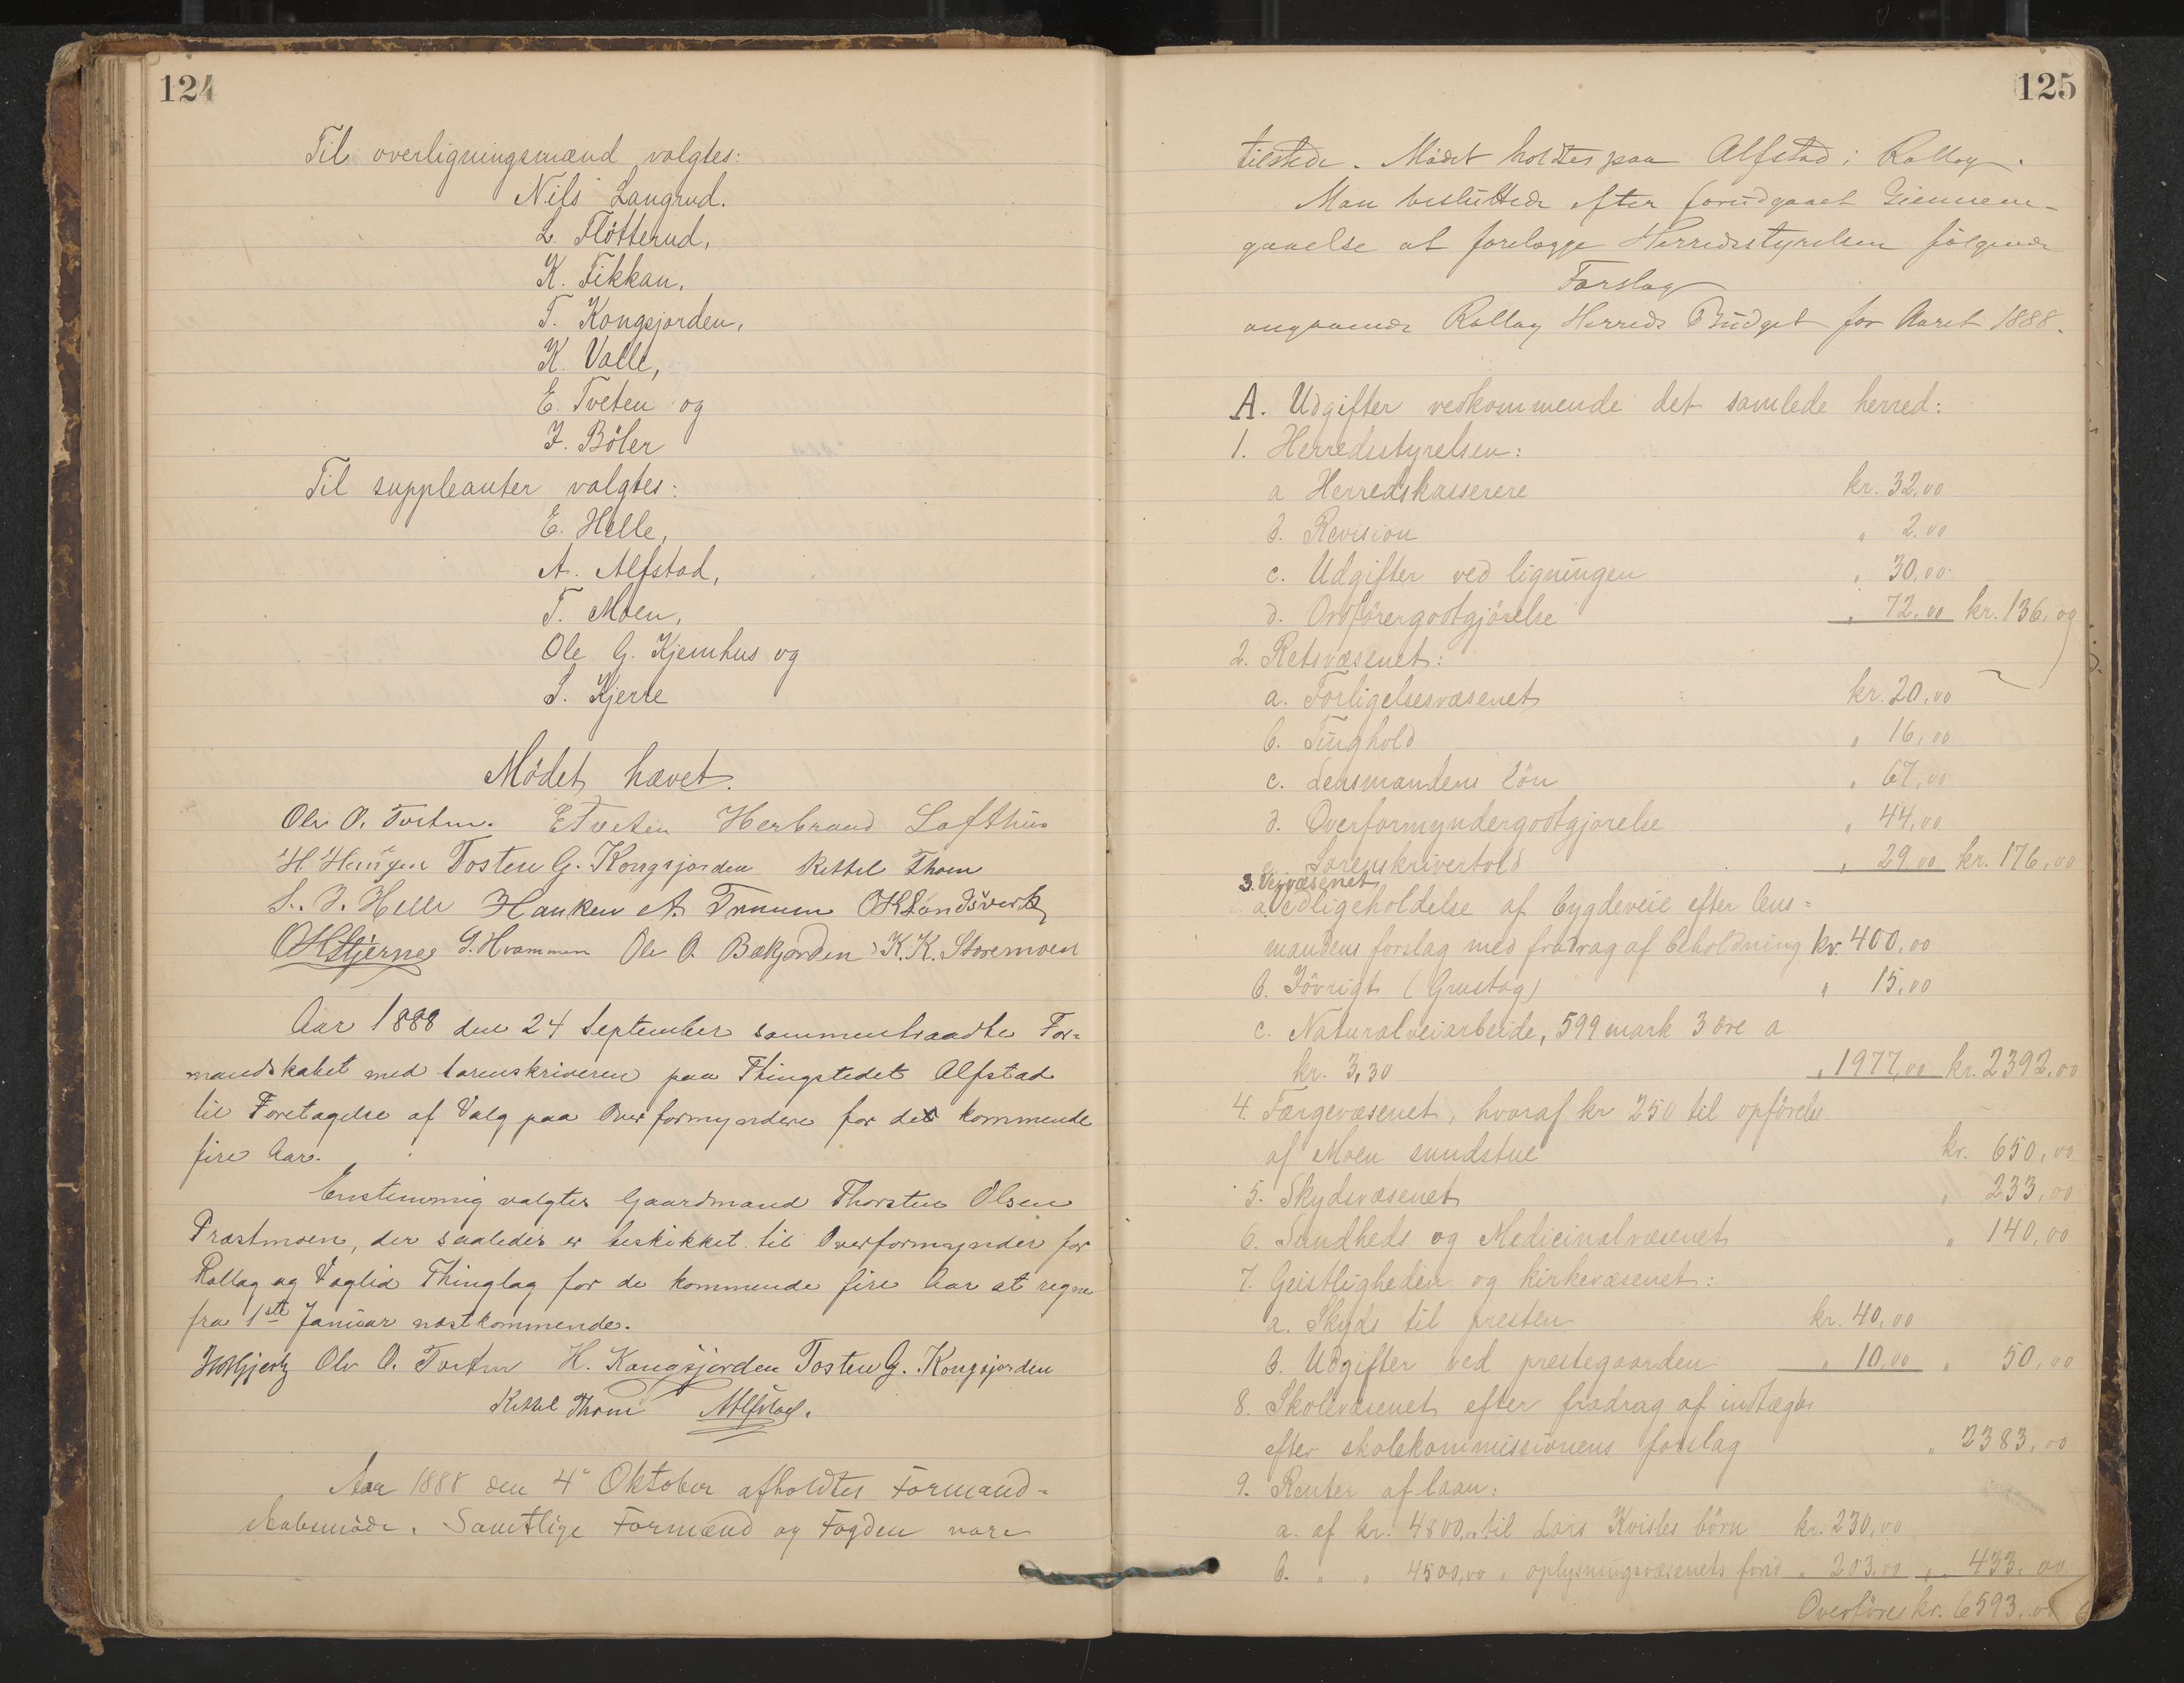 124
Til overligningsmænd valgtes:
Nils Langrud.
L. Flötterud,
K. Fikkan,
T. Kongsjorden,
K. Valle,
E. Tveten og
J. Böler
Til suppleanter valgtes:
E. Helle,
A. Alfstad,
T. Moen,
Ole G. Kjemhus og
S. Kjerre
Mødet hævet.
Ole O. Tveten. E Tveten Herbrand Lofthus
H Tosten G. Kongsjorden Kittil Thoen
S. J. Helle Haaken A. Traaen
G. Hvammen Ole O. Bækjorden K. K. Storemoen
Aar 1888 den 24 September sammentraadte For=
mandskabet med Sorenskriveren paa Thingstedet Alfstad
til Foretagelse af Valg paa Overformyndere for de kommende
fire Aar.
Enstemmig valgtes Gaardmand Thorsten Olsen
Præstmoen, der saaledes er beskikket til Overformynder for
Rollag og Veglid Thinglag for de kommende fire Aar at regne
fra 1ste Januar næstkommende.
Ole O. Tveten H. Kongsjorden Tosten G. Kongsjorden
Kittil Thoen AAlfstad.
Aar 1888 den 4de Oktober afholdtes Formand=
skabsmöde. Samtlige Formænd og Fogden vare
125
tilstede. Mödet holdtes paa Alfstad i Rollag.
Man besluttede efter forudgaaet Giennem-
gaaelse at forelægge Herredsstyrelsen følgende
Forslag
angaaende Rollag Herreds Budget for Aaret 1888.
A. Udgifter vedkommende det samlede herred:
1. Herredsstyrelsen:
a Herredskasserere kr. 32,00
b. Revision " 2,00
c. Udgifter ved ligningen " 30,00
d. Ordförergodtgjörelse " 72,00 kr. 136,00
2. Retsvæsenet:
a. Forligelsesvæsenet kr. 20,00
b. Tinghold " 16,00
c. Lensmandens Lön " 67,00
d. Overformyndergodtgjörelse " 44,00
e. Sorenskrivertold " 29,00 kr. 176,00
3. Veivæsenet
a. Vedligeholdelse af bygdeveie efter lens=
mandens forslag med fradrag af beholdning kr. 400,00
b. Iövrigt (Grustag) " 15,00
c. Naturalveiarbeide, 599 mark 3 öre a
kr. 3,30 " 1977,00 kr. 2392,00
4. Færgevæsenet, hvoraf kr 250 til opförelse
af Moen sundstue kr. 650,00
5. Skydsvæsenet " 233,00
6. Sundheds og Medicinalvæsenet " 140,00
7. Geistligheden og kirkevæsenet:
a. Skyds til presten kr. 40,00
b. Udgifter ved prestegaarden " 10,00 " 50,00
8. Skolevæsenet efter fradrag af indtægter
efter skolekommissionens forslag " 2383,00
9. Renter af laan:
a. af kr. 4800,00 til Lars Kvisles börn kr. 230,00
b. " " 4500,00 " oplysningsvæsenets fond " 203,00 " 433,00
Overföres kr. 6593,00